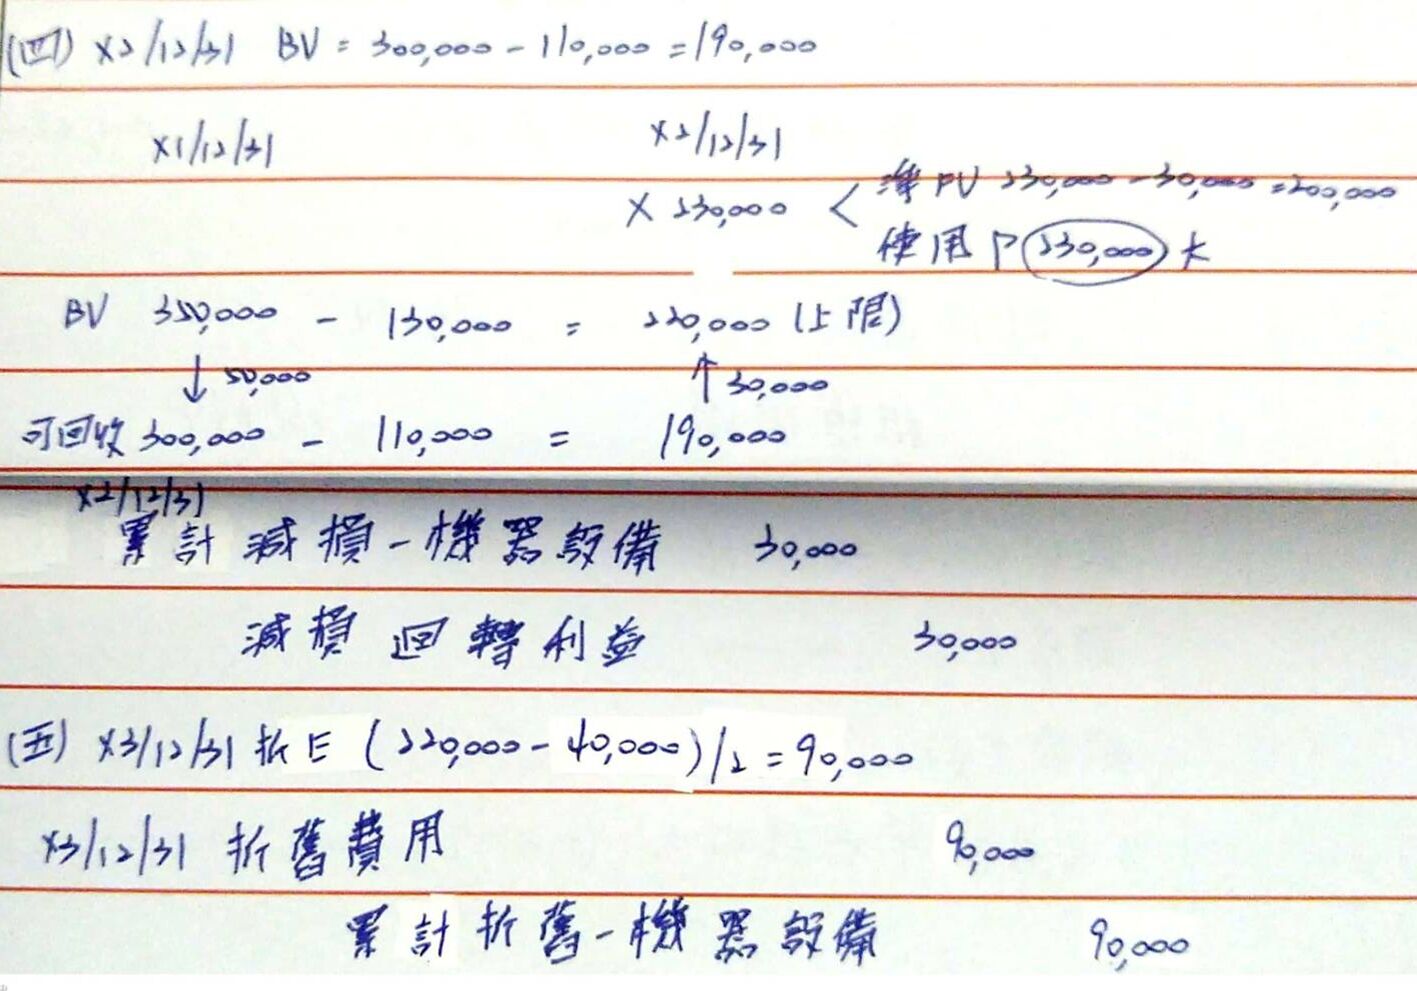 (四) X2/12/31 BV = 300,000 - 110,000 = 190,000
X1/12/31 X2/12/31
淨FV 230,000 - 30,000 = 200,000
X 230,000 <
使用P 230,000 大
BV 350,000 - 130,000 = 220,000 (上限)
↓ 50,000 ↑ 30,000
可回收 300,000 - 110,000 = 190,000
X2/12/31
累計減損-機器設備 30,000
減損迴轉利益 30,000
(五) X3/12/31 折E (220,000 - 40,000)/2 = 90,000
X3/12/31 折舊費用 90,000
累計折舊-機器設備 90,000